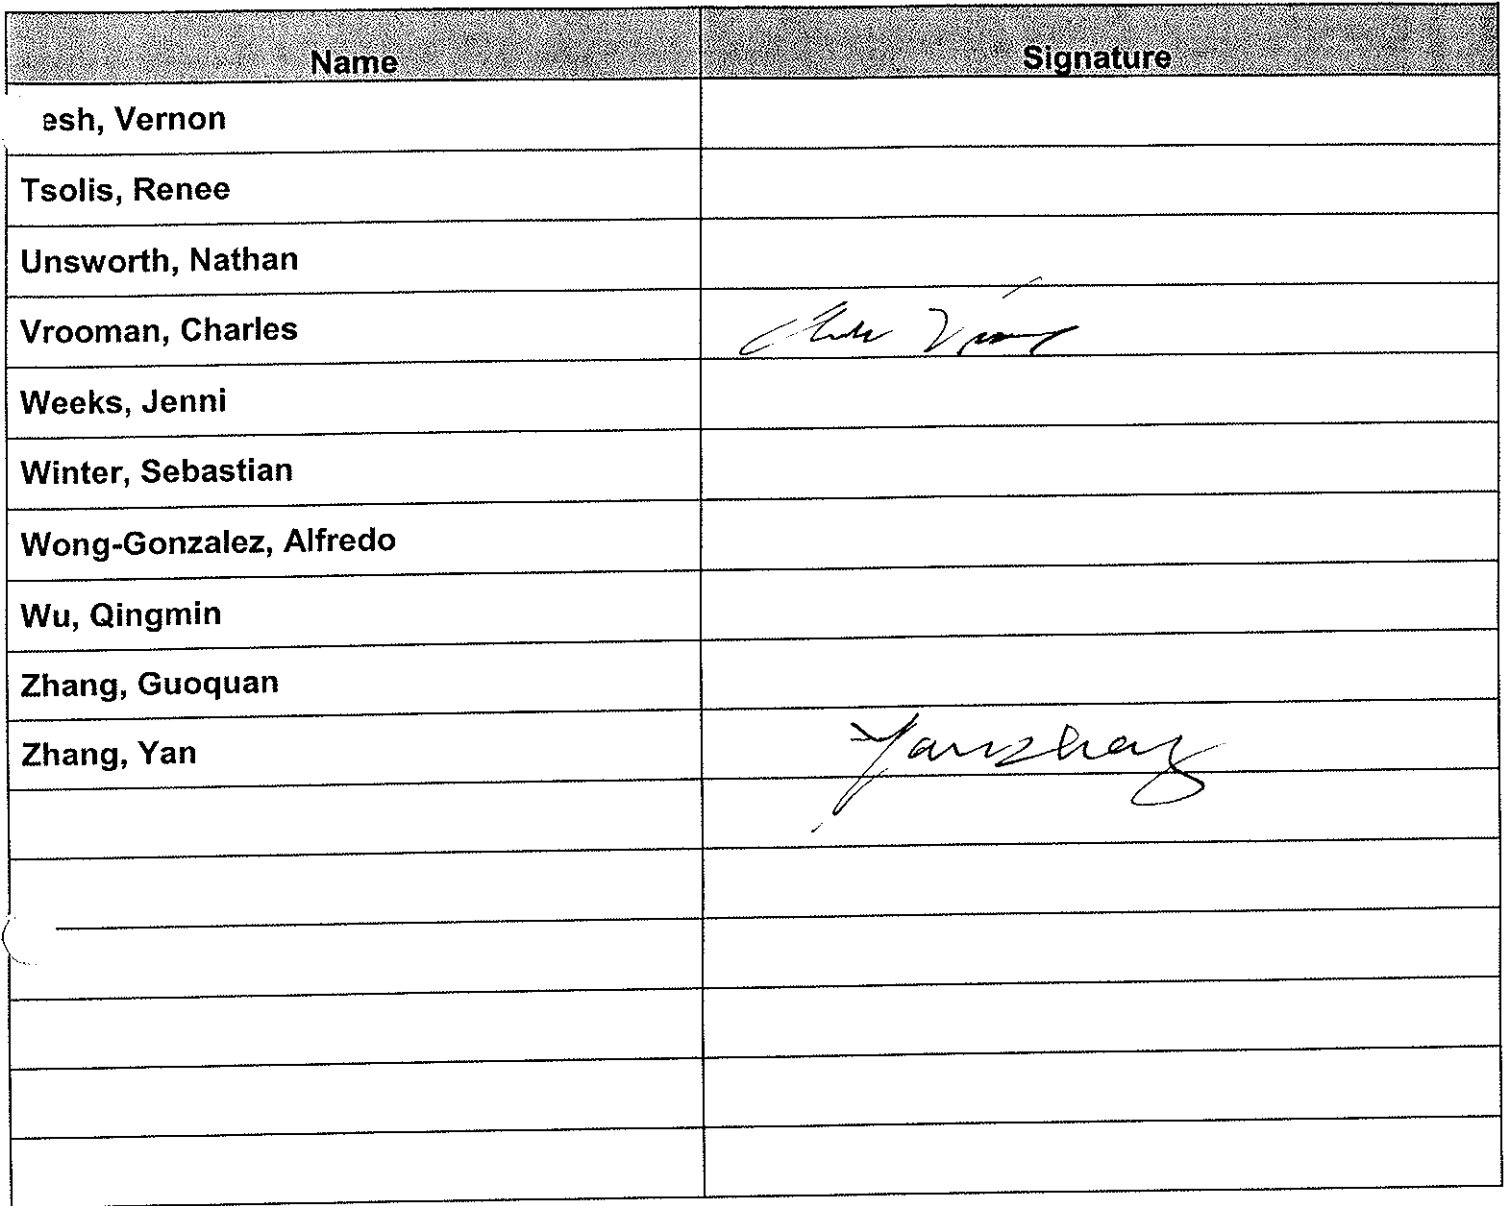 Name Signature
esh, Vernon
Tsolis, Renee
Unsworth, Nathan
Vrooman, Charles
Weeks, Jenni
Winter, Sebastian
Wong-Gonzalez, Alfredo
Wu, Qingmin
Zhang, Guoquan
Zhang, Yan Yan zhang